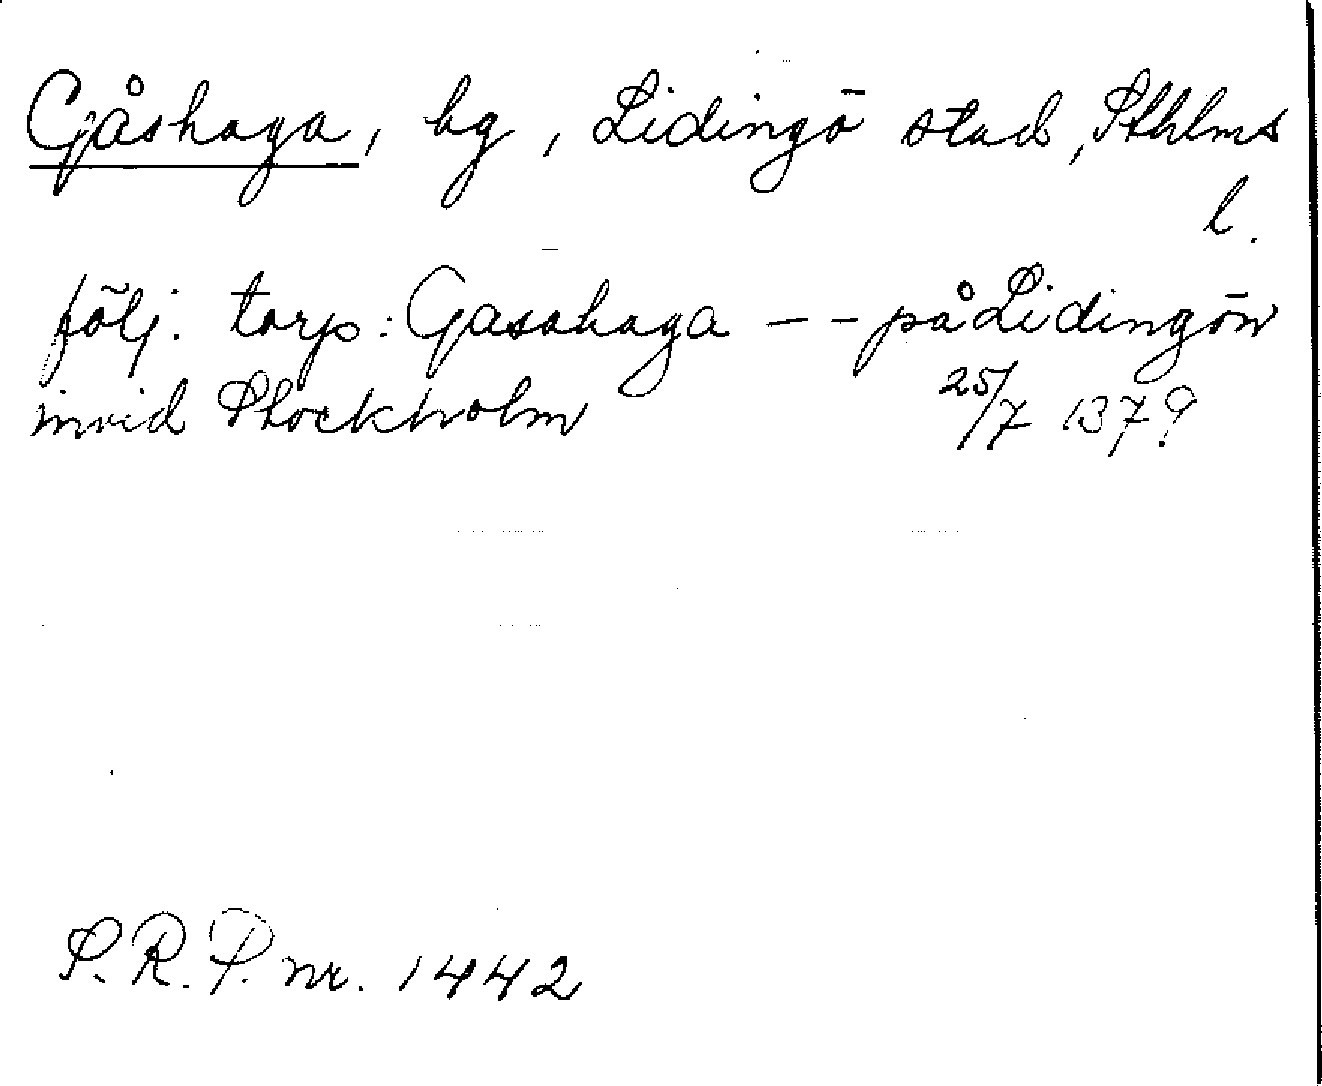 Gåshaga, hg, Lidingö stad, Sthlms
l.
följ. torp: Gasahaga - - på Lidingön
invid Stockholm 25/7 1379
S.R.P. nr. 1442